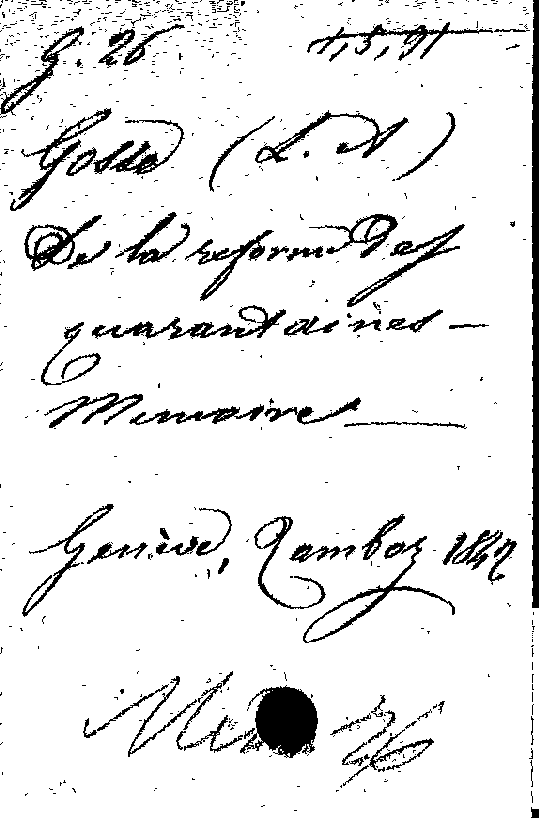 G. 26 1,5,91
Gosse (L. A)
De la reforme des
quarantaines —
Mémoire —
Genève, Ramboz 1842
26